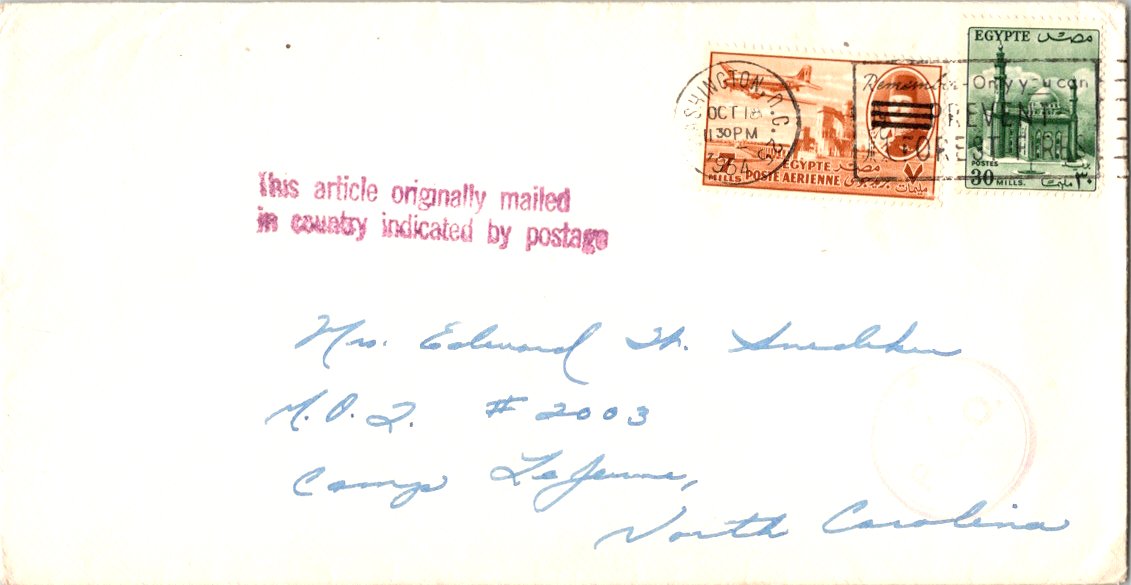 EGYPTE مصر
WASHINGTON, D.C.
OCT 18
11 30 PM
1954
Remember-Only you can
PREVENT
FOREST FIRES
7 MILLS
EGYPTE مصر
POSTE AERIENNE بريد جوى
٧ مليمات
POSTES بريد
30 MILLS. ٣٠ مليما
This article originally mailed
in country indicated by postage
Mrs. Edward H. Snedeker
M.O.Q. # 2003
Camp LeJeune,
North Carolina